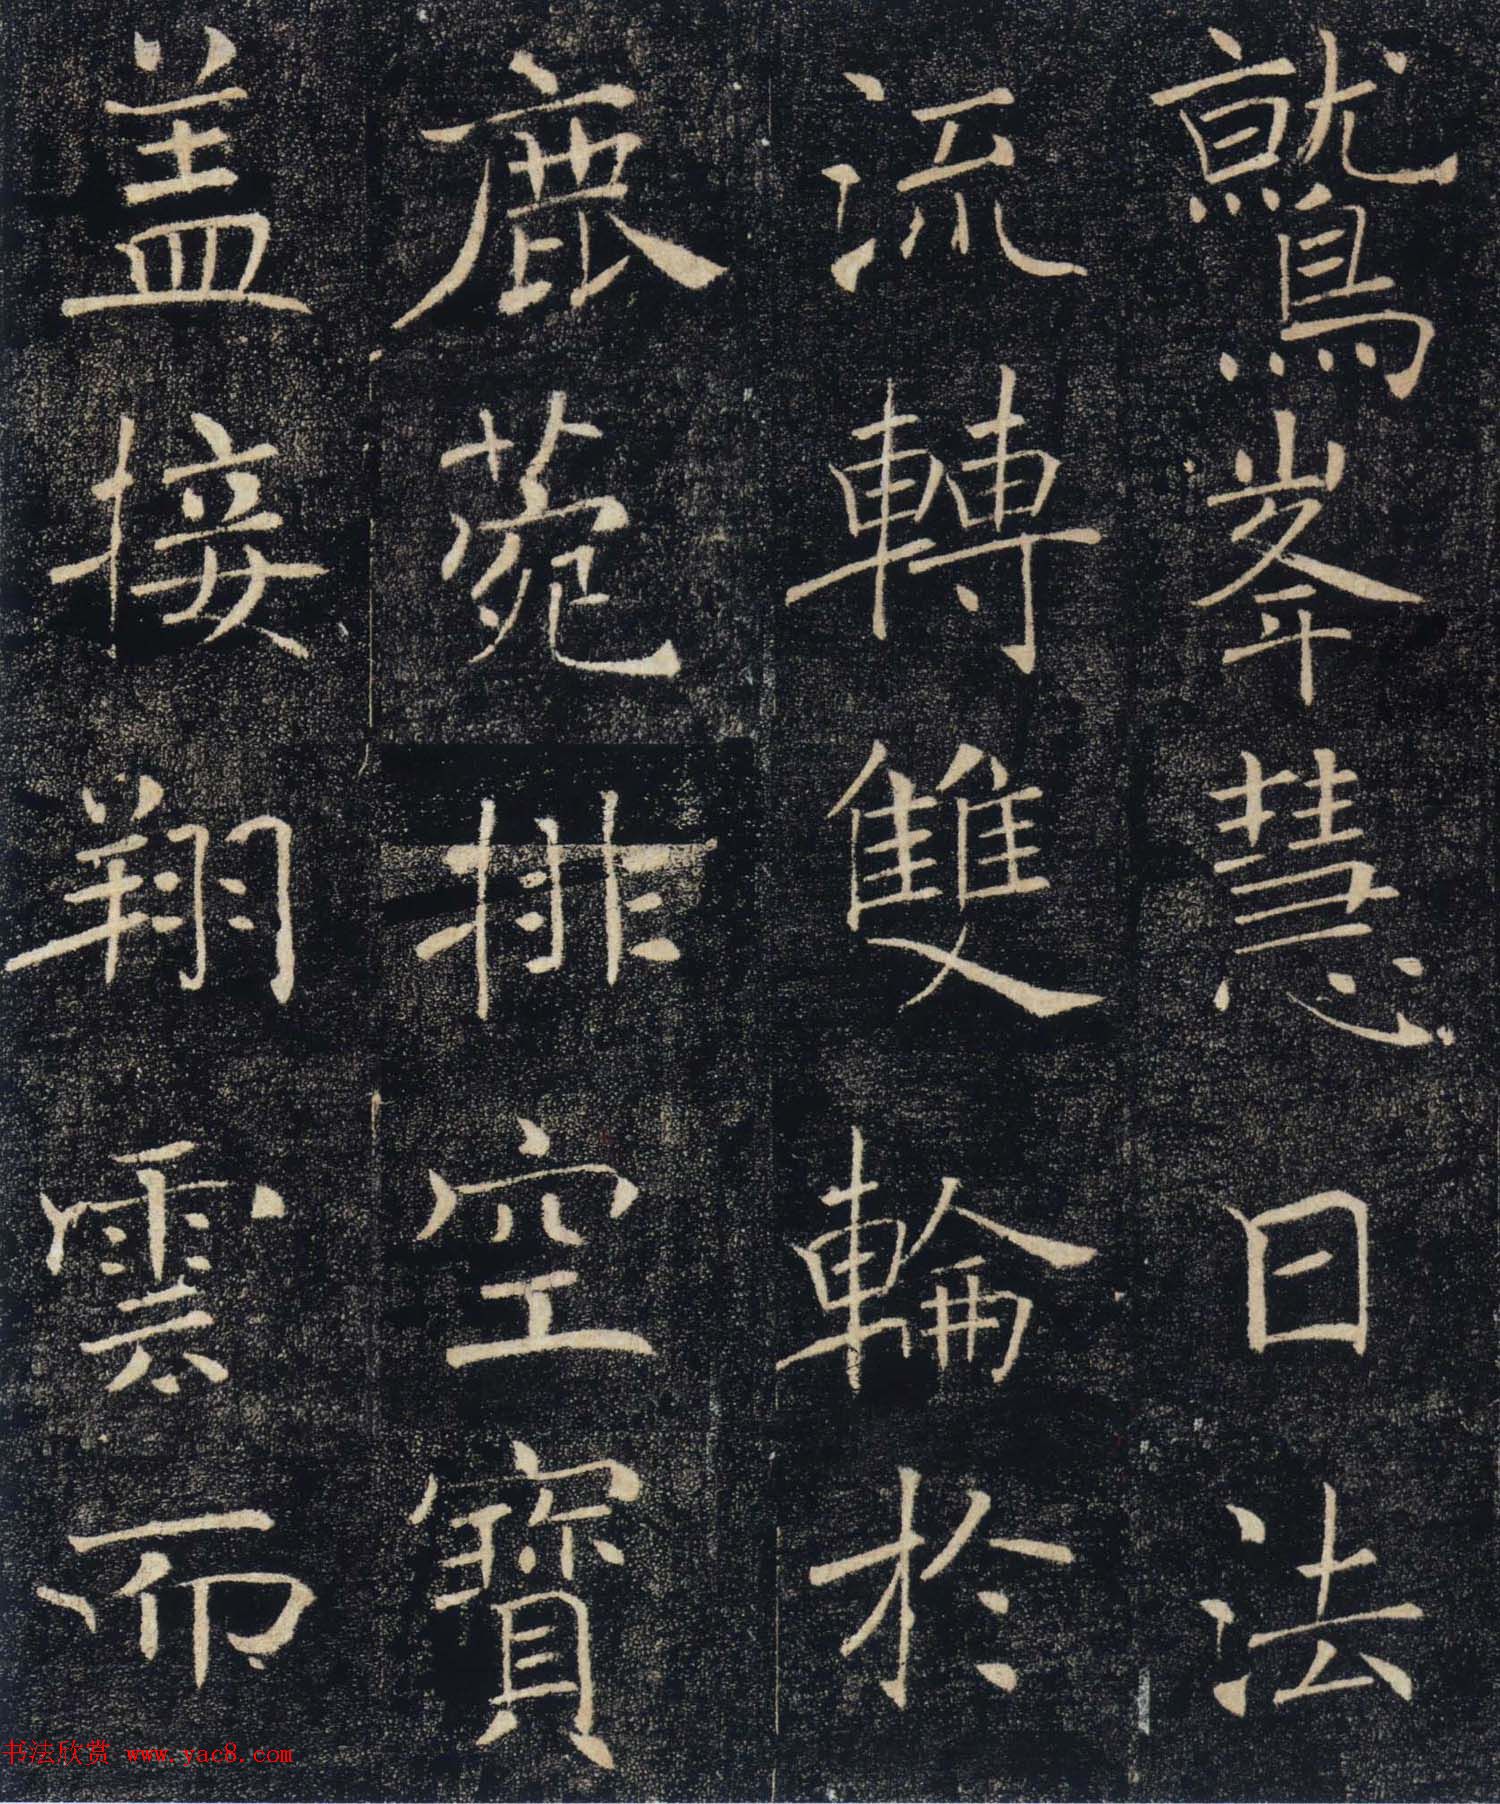 鷲峯慧日法
流轉雙輪於
鹿菀排空寶
盖接翔雲而
书法欣赏 www.yac8.com